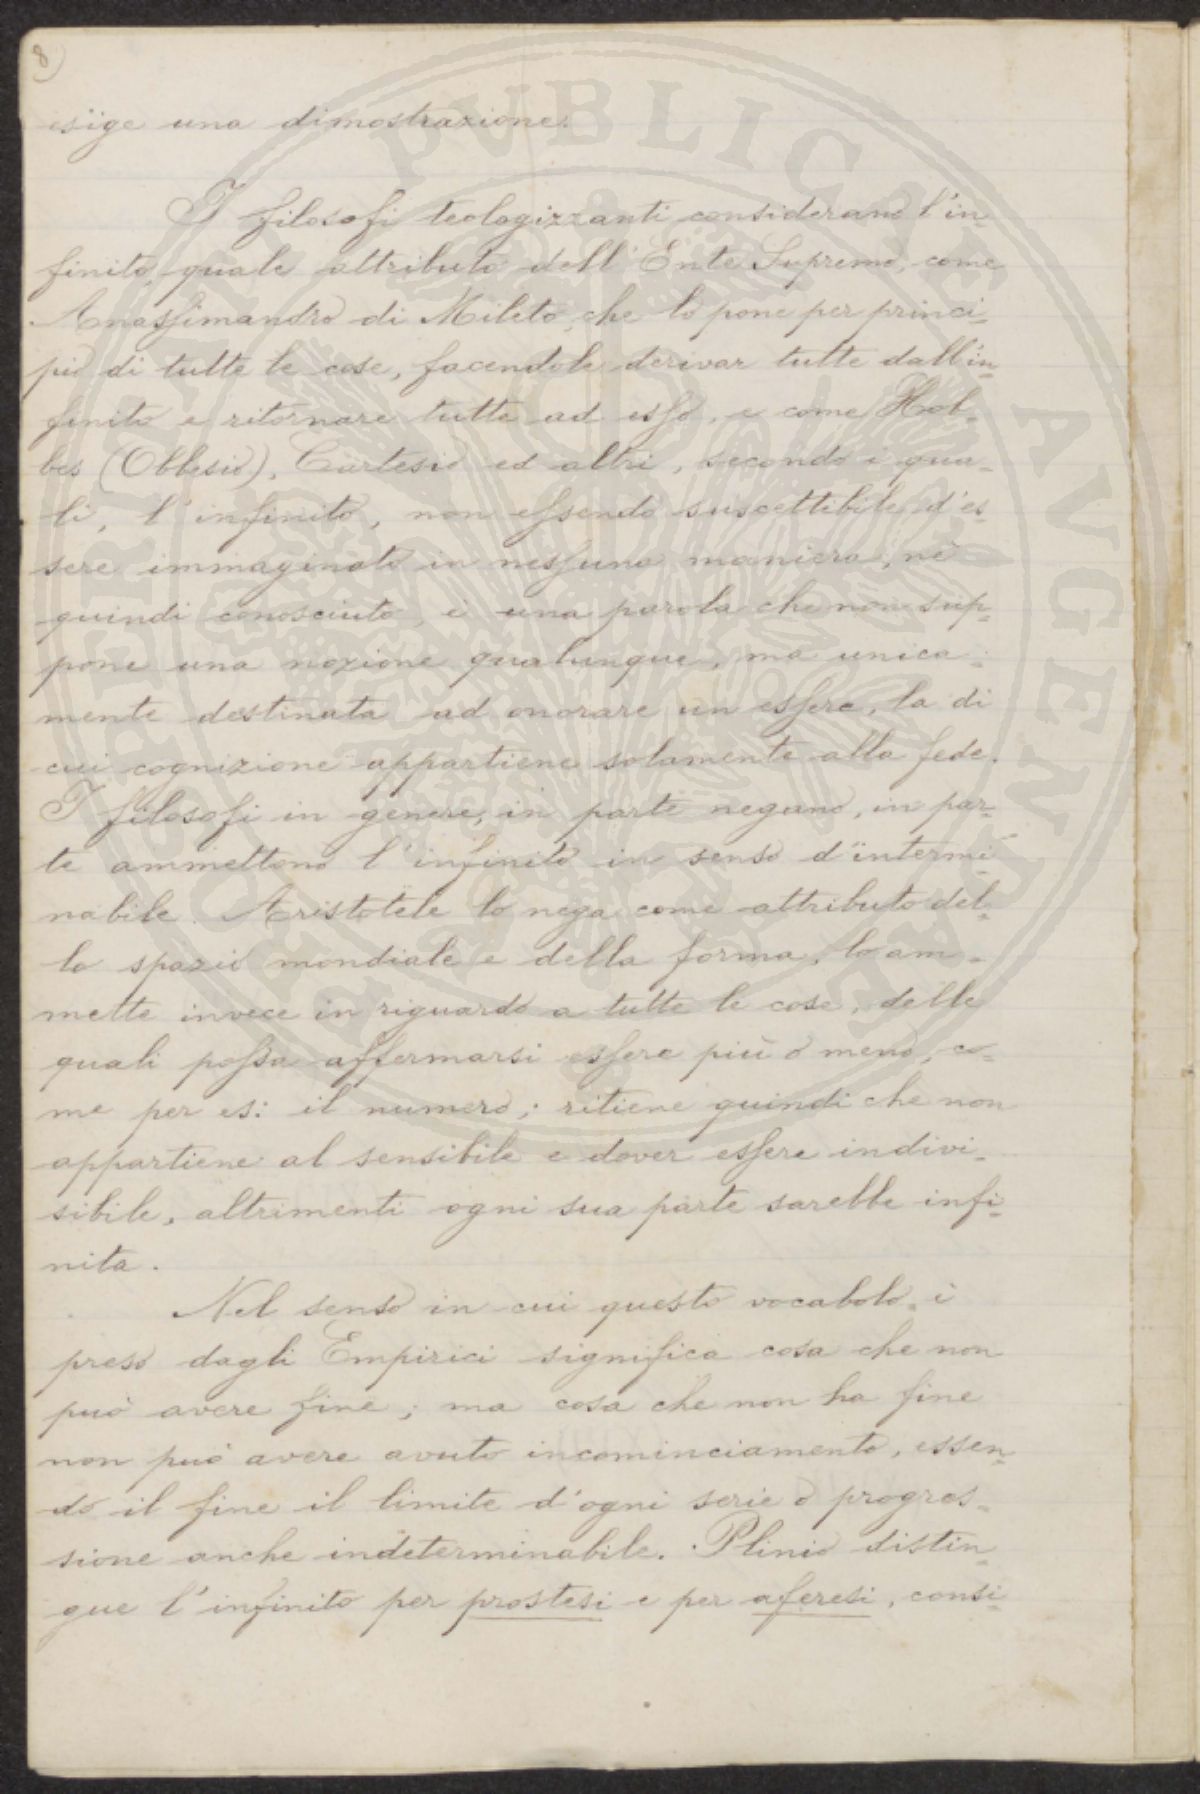 8
esige una dimostrazione.
I filosofi teologizzanti considerano l'in-
finito, quale attributo dell'Ente Supremo, come
Anassimandro di Mileto, che lo pone per princi-
pio di tutte le cose, facendole derivar tutte dall'in-
finito e ritornare tutte ad esso, e come Hob-
bes (Obbesio), Cartesio ed altri, secondo i qua-
li, l'infinito, non essendo suscettibile d'es-
sere immaginato in nessuna maniera, nè
quindi conosciuto, è una parola che non sup-
pone una nozione qualunque, ma unica-
mente destinata ad onorare un essere, la di
cui cognizione appartiene solamente alla fede.
I filosofi in genere, in parte negano, in par-
te ammettono l'infinito in senso d'intermi-
nabile. Aristotele lo nega come attributo del-
lo spazio mondiale e della forma, lo am-
mette invece in riguardo a tutte le cose, delle
quali possa affermarsi essere più o meno, co-
me per es: il numero; ritiene quindi che non
appartiene al sensibile e dover essere indivi-
sibile, altrimenti ogni sua parte sarebbe infi-
nita.
Nel senso in cui questo vocabolo è
preso dagli Empirici significa cosa che non
può avere fine; ma cosa che non ha fine
non può avere avuto incominciamento, essen-
do il fine il limite d'ogni serie o progres-
sione anche indeterminabile. Plinio distin-
gue l'infinito per prostesi e per aferesi, consi-
PVBLICAE AVGENDAE